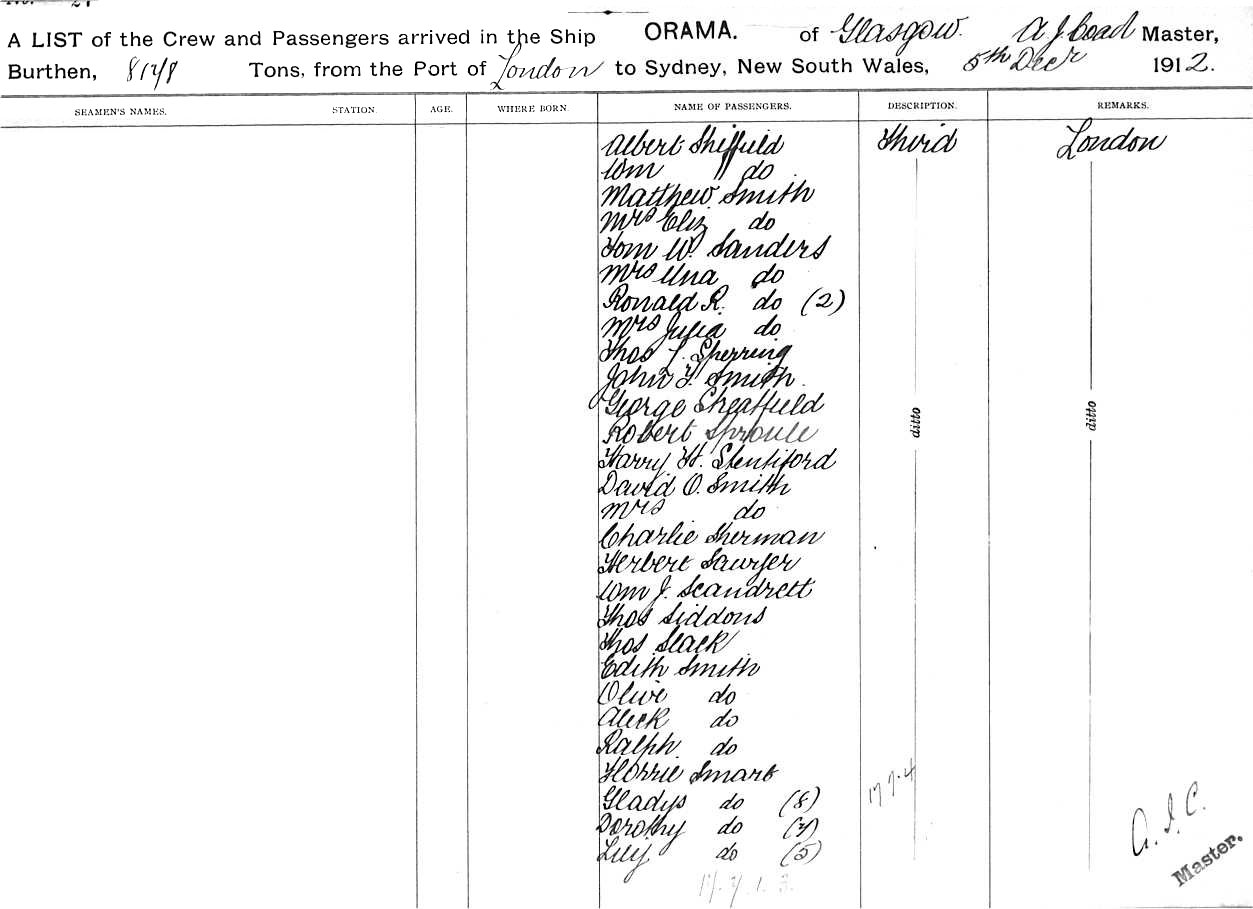 A LIST of the Crew and Passengers arrived in the Ship ORAMA. of Glasgow. A J Coad Master,
Burthen, 8178 Tons, from the Port of London to Sydney, New South Wales, 5th Decr 1912.
SEAMEN'S NAMES. STATION. AGE. WHERE BORN. NAME OF PASSENGERS. DESCRIPTION. REMARKS.
Albert Sheffield Third London
Wm do
Matthew Smith
Mrs Eliz do
Tom W. Sanders
Mrs Una do
Ronald R. do (2)
Mrs Julia do
Thos Sperring
John F. Smith
George Sheaffield
Robert Sproule
ditto ditto
Harry H. Stentiford
David O. Smith
Mrs do
Charlie Sherman
Herbert Sawyer
Wm J. Scandrett
Thos Siddons
Thos Slack
Edith Smith
Olive do
Aleck do
Ralph do
Florrie Smart
Gladys do (8)
Dorothy do (7)
Lily do (5)
17.7.4
17.7.1.3.
A.J.C.
Master.